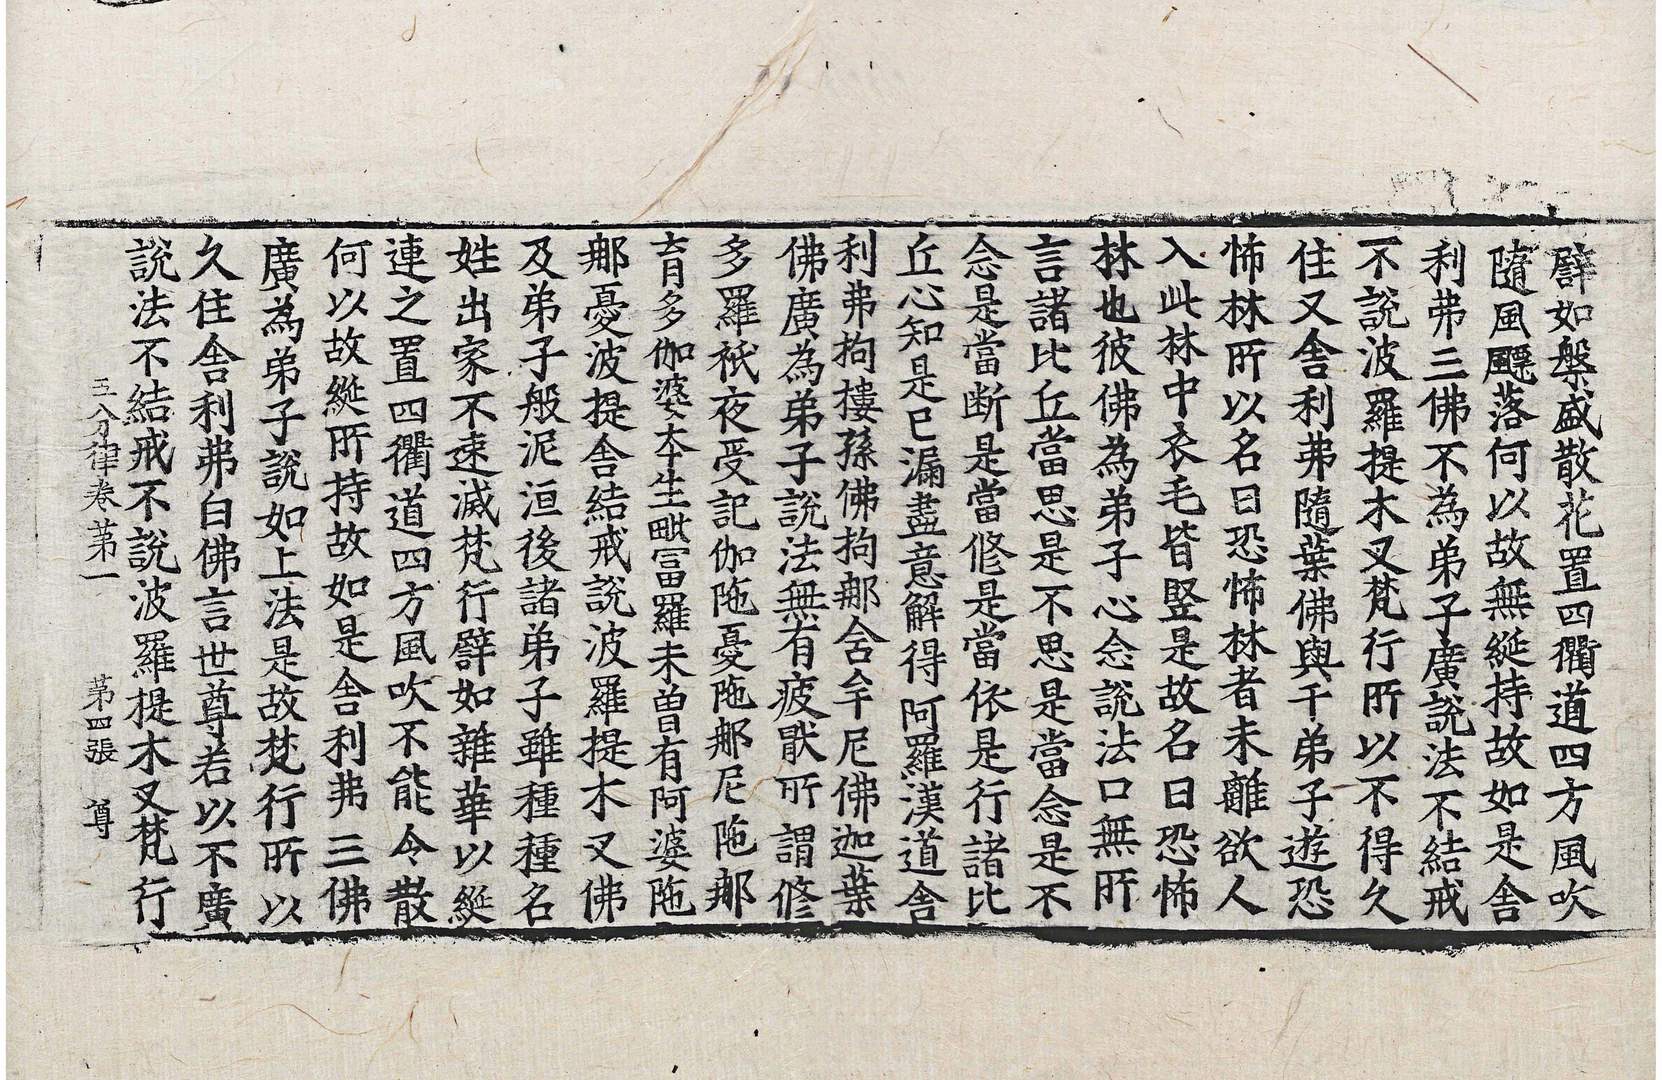 譬如槃盛散花置四衢道四方風吹
隨風飃落何以故無綖持故如是舍
利弗三佛不為弟子廣說法不結戒
不說波羅提木叉梵行所以不得久
住又舍利弗隨葉佛與千弟子遊恐
怖林所以名曰恐怖林者未離欲人
入此林中衣毛皆竪是故名曰恐怖
林也彼佛為弟子心念說法口無所
言諸比丘當思是不思是當念是不
念是當断是當修是當依是行諸比
丘心知是已漏盡意解得阿羅漢道舍
利弗拘樓孫佛拘那舍牟尼佛迦葉
佛廣為弟子說法無有疲厭所謂修
多羅祇夜受記伽陁憂陁那尼陁那
育多伽婆本生毗富羅未曽有阿婆陁
那憂波提舍結戒說波羅提木叉佛
及弟子般泥洹後諸弟子雖種種名
姓出家不速滅梵行譬如雜華以綖
連之置四衢道四方風吹不能令散
何以故綖所持故如是舍利弗三佛
廣為弟子說如上法是故梵行所以
久住舍利弗白佛言世尊若以不廣
說法不結戒不說波羅提木叉梵行
五分律卷第一 第四張 尊